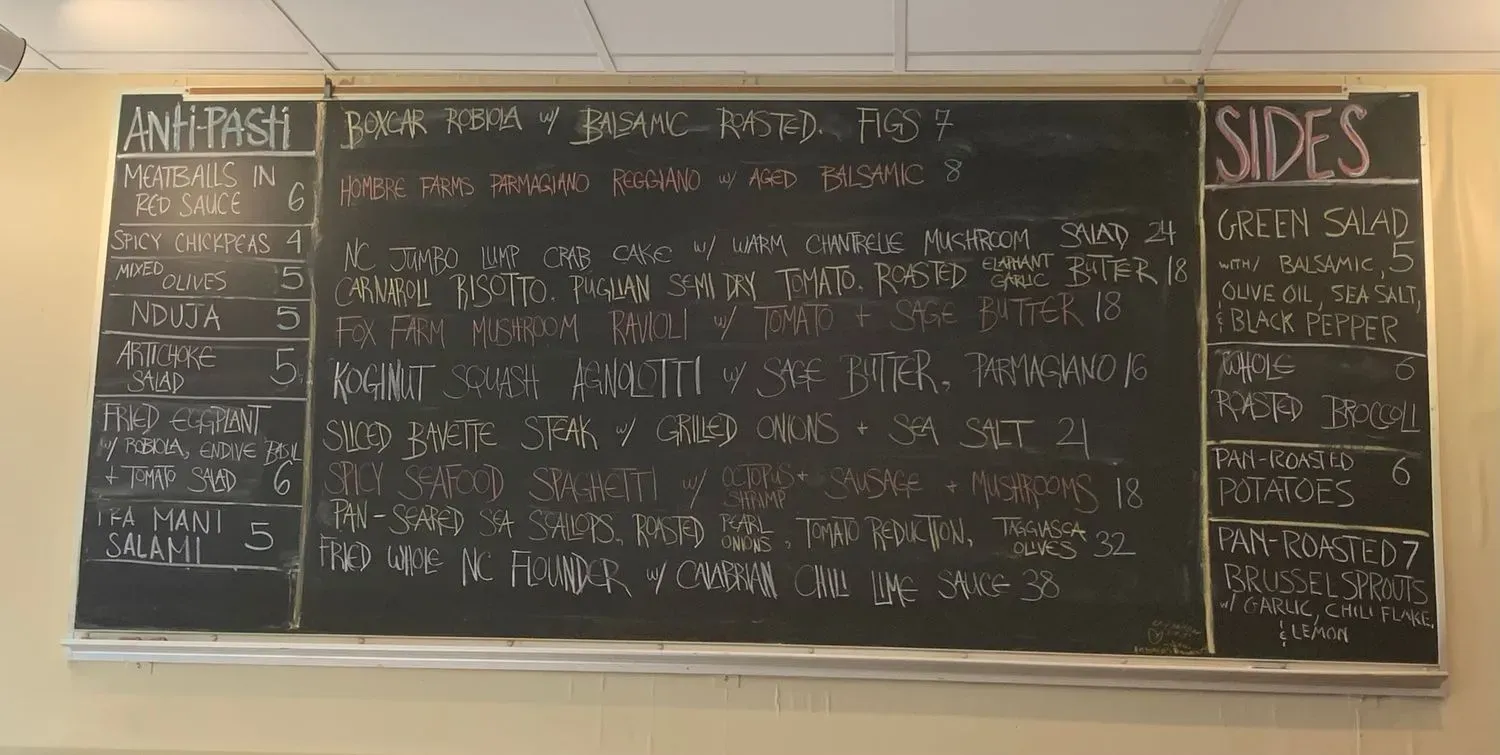 ANTI-PASTI
MEATBALLS IN
RED SAUCE 6
SPICY CHICKPEAS 4
MIXED
OLIVES 5
NDUJA 5
ARTICHOKE
SALAD 5
FRIED EGGPLANT
w/ ROBIOLA, ENDIVE BASIL
+ TOMATO SALAD 6
TRA MANI
SALAMI 5
BOXCAR ROBIOLA w/ BALSAMIC ROASTED. FIGS 7
HOMBRE FARMS PARMAGIANO REGGIANO w/ AGED BALSAMIC 8
NC JUMBO LUMP CRAB CAKE w/ WARM CHANTRELLE MUSHROOM SALAD 24
CARNAROLI RISOTTO. PUGLIAN SEMI DRY TOMATO. ROASTED ELAPHANT GARLIC BUTTER 18
FOX FARM MUSHROOM RAVIOLI w/ TOMATO + SAGE BUTTER 18
KOGINUT SQUASH AGNOLOTTI w/ SAGE BUTTER, PARMAGIANO 16
SILCED BAVETTE STEAK w/ GRILLED ONIONS + SEA SALT 21
SPICY SEAFOOD SPAGHETTI w/ OCTOPUS + SHRIMP SAUSAGE + MUSHROOMS 18
PAN-SEARED SEA SCALLOPS. ROASTED PEARL ONIONS, TOMATO REDUCTION, TAGGIASCA OLIVES 32
FRIED WHOLE NC FLOUNDER w/ CALABRIAN CHILI LIME SAUCE 38
SIDES
GREEN SALAD
WITH/ BALSAMIC, 5
OLIVE OIL, SEA SALT,
& BLACK PEPPER
WHOLE 6
ROASTED BROCCOLI
PAN-ROASTED 6
POTATOES
PAN-ROASTED 7
BRUSSEL SPROUTS
w/ GARLIC, CHILI FLAKE,
& LEMON